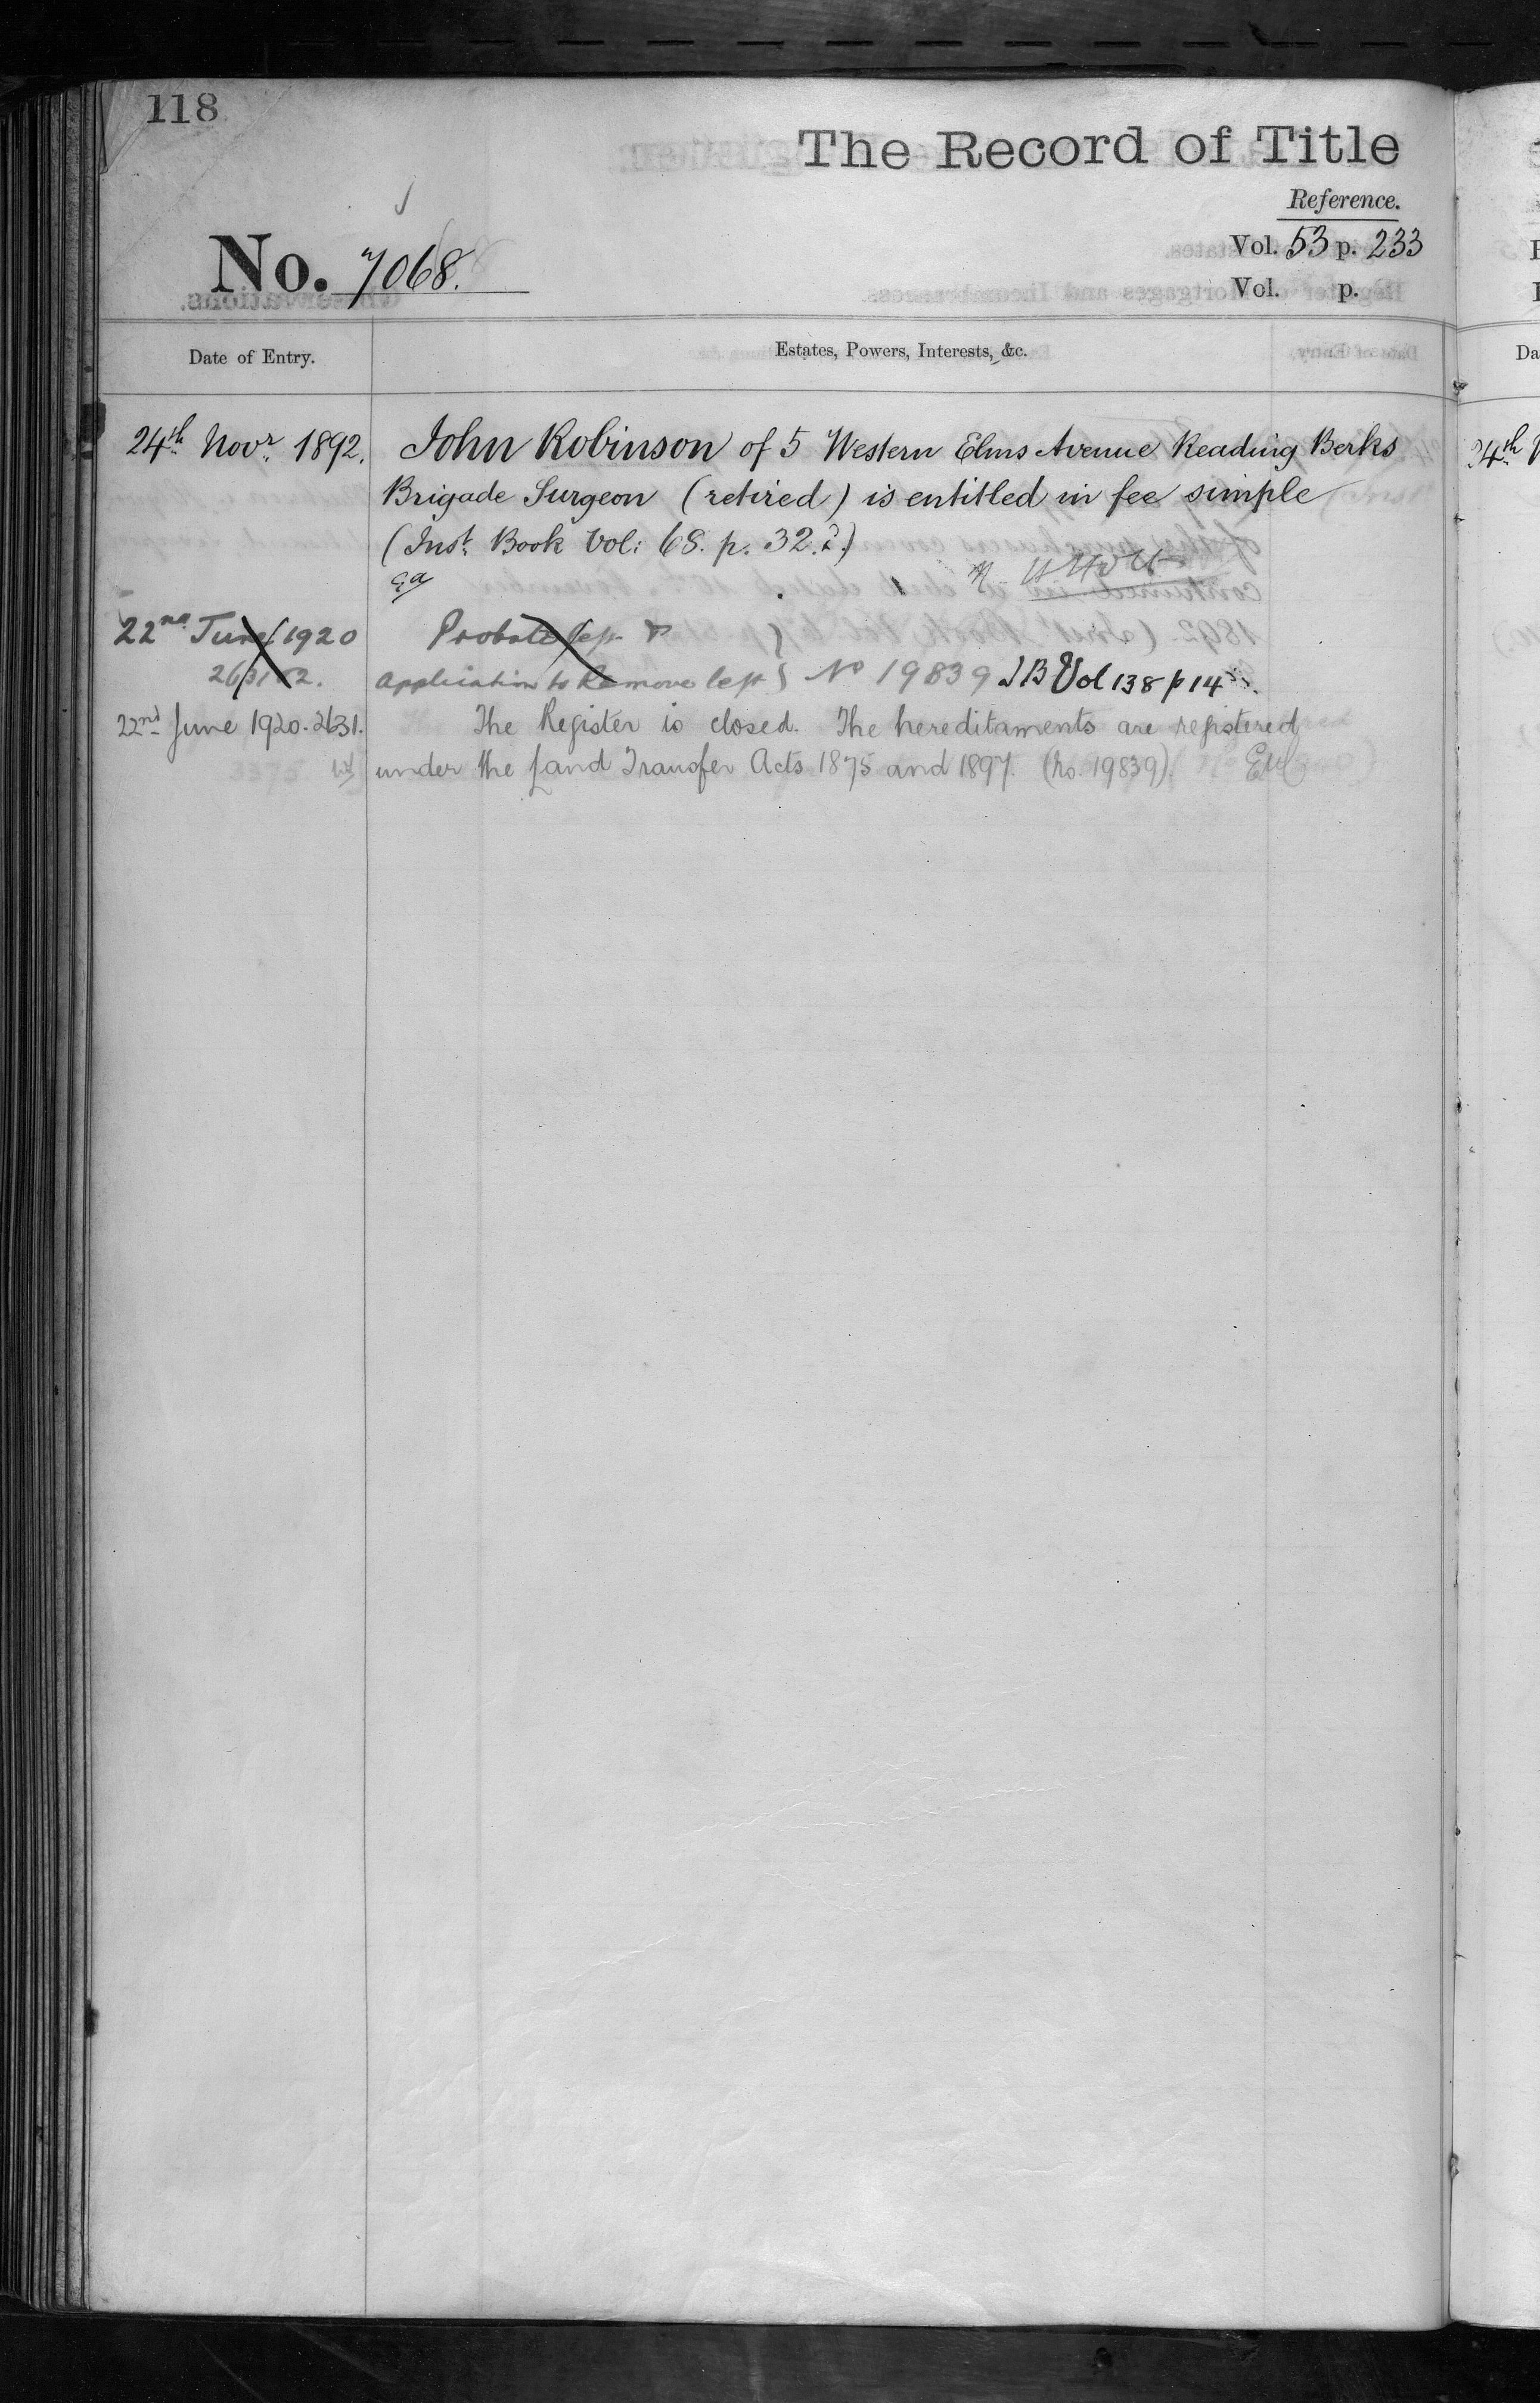 118
The Record of Title
Reference.
No. 7068.
Vol. 53 p. 233
Vol. p.
Date of Entry.
Estates, Powers, Interests, &c.
24th Novr. 1892. John Robinson of 5 Western Elms Avenue Reading Berks
Brigade Surgeon (retired) is entitled in fee simple
(Inst. Book Vol: 68. p. 32.)
22nd June 1920 Probate left &
Application to Remove left } No 19839 IB Vol 138 p 14
22nd June 1920. 2631. The Register is closed. The hereditaments are registered
under the Land Transfer Acts 1875 and 1897. (No. 19839).
24th